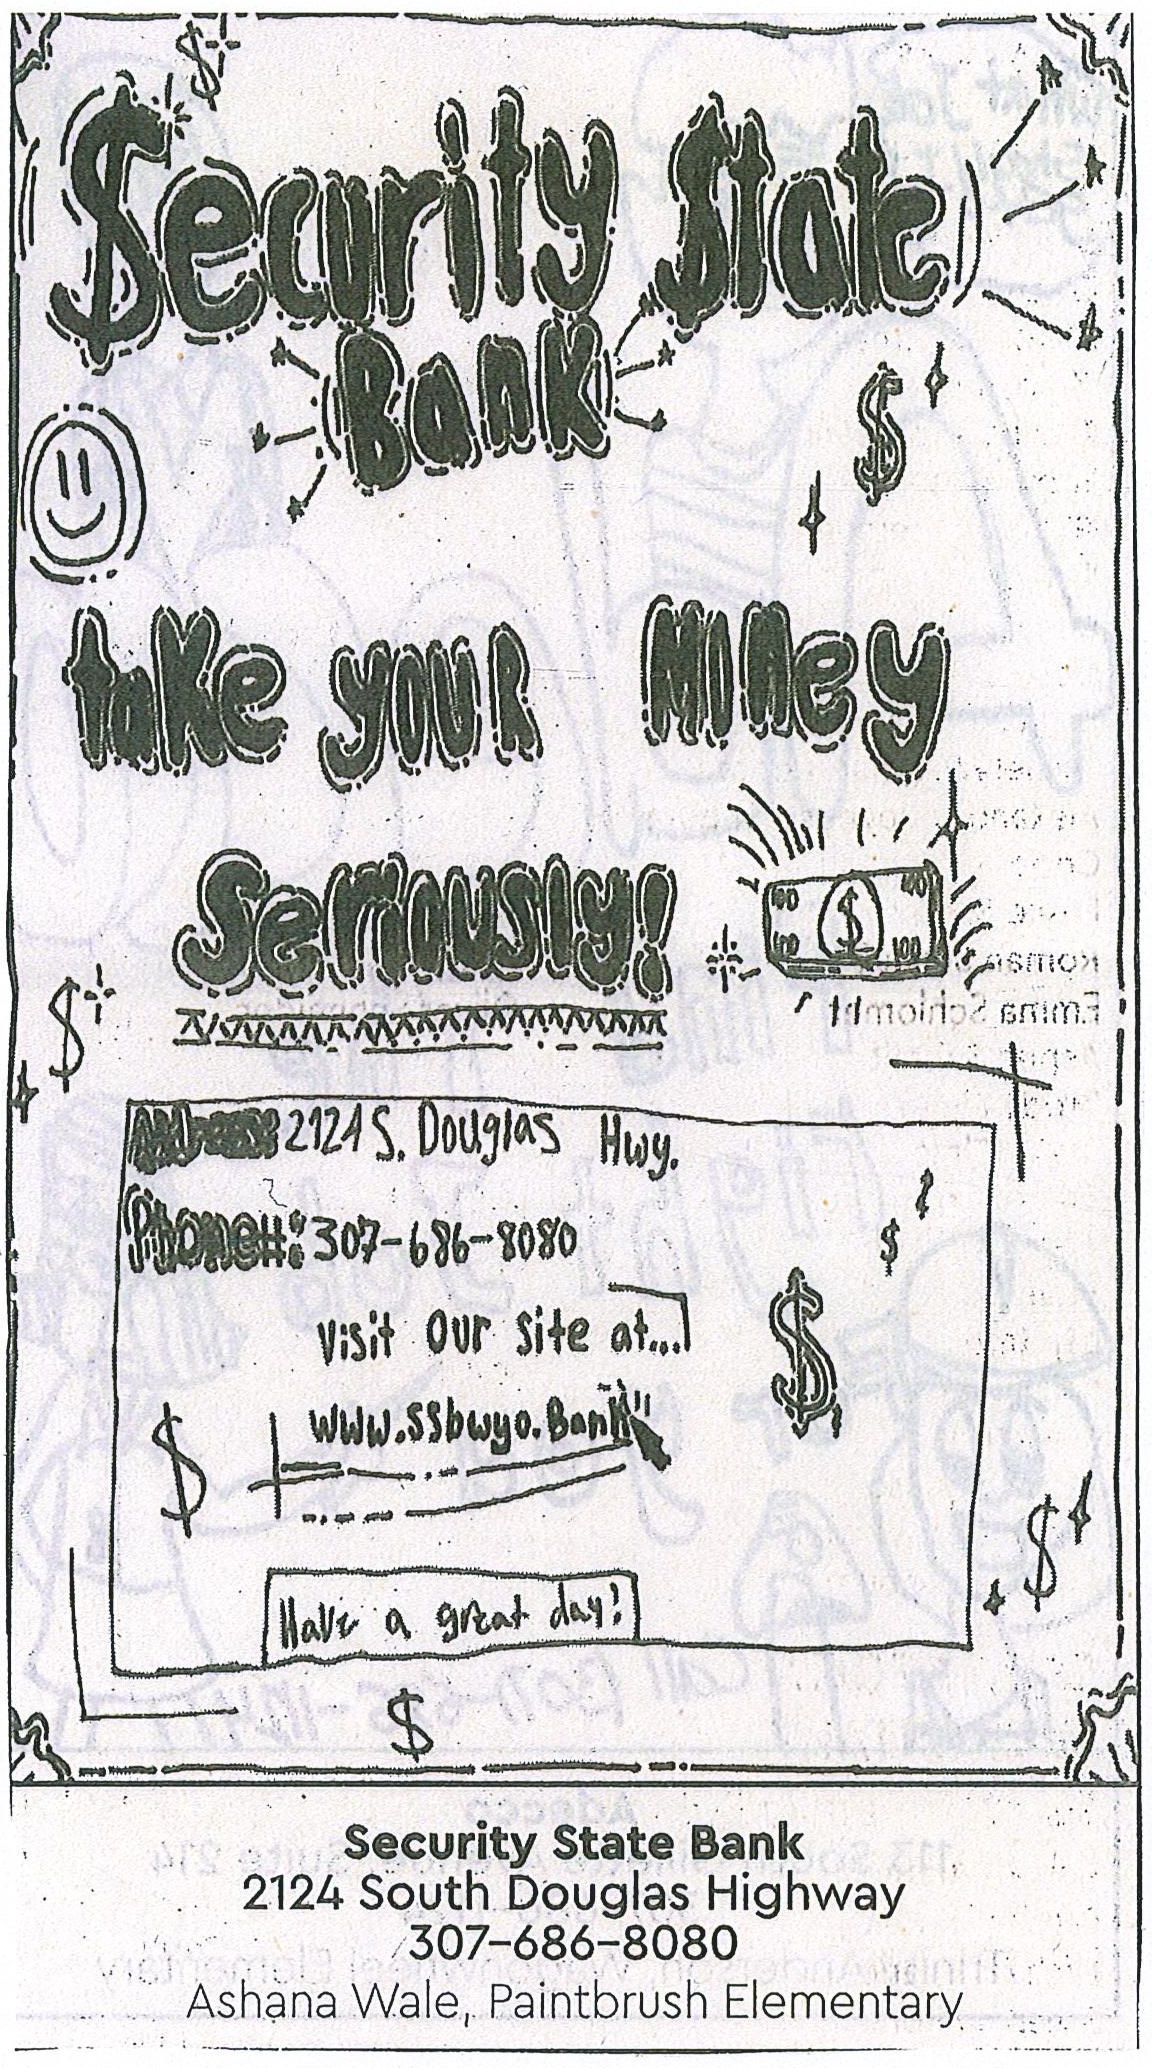 Security State
Bank
take your Money
Seriously!
100 $ 100
100 100
Address 2124 S. Douglas Hwy.
Phone#: 307-686-8080
Visit Our Site at...
www.ssbwyo.Bank
Have a great day!
Security State Bank
2124 South Douglas Highway
307-686-8080
Ashana Wale, Paintbrush Elementary